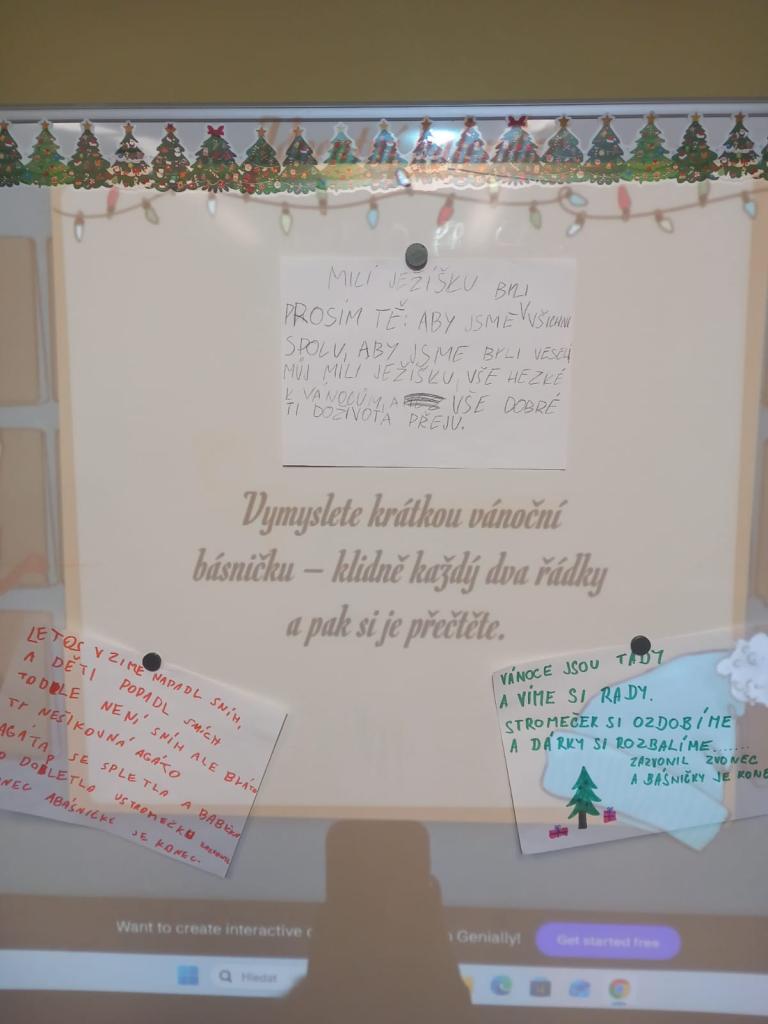 MILÍ JEŽÍŠKU BYLI
PROSÍM TĚ: ABY JSME V VŠICHNI
SPOLU, ABY JSME BYLI VESELÍ
MŮJ MILÍ JEŽÍŠKU, VŠE HEZKÉ
K VÁNOCŮM, A VŠE DOBRÉ
TI DOŽIVOTA PŘEJU.
Vymyslete krátkou vánoční
básničku – klidně každý dva řádky
a pak si je přečtěte.
LETOS V ZIMĚ NAPADL SNÍH,
A DĚTI POPADL SMÍCH
TODLE NENÍ SNÍH ALE BLÁTO
TY NEŠIKOVNÁ AGÁTO
AGÁTA SE SPLETLA A BÁBU
DOBLETLA USTROMEČKU
ABÁSNIČKE JE KONEC.
VÁNOCE JSOU TADY
A VÍME SI RADY.
STROMEČEK SI OZDOBÍME
A DÁRKY SI ROZBALÍME......
ZAZVONIL ZVONEC
A BÁSNIČKY JE KONE
Want to create interactive
Genially!
Get started free
Hledat